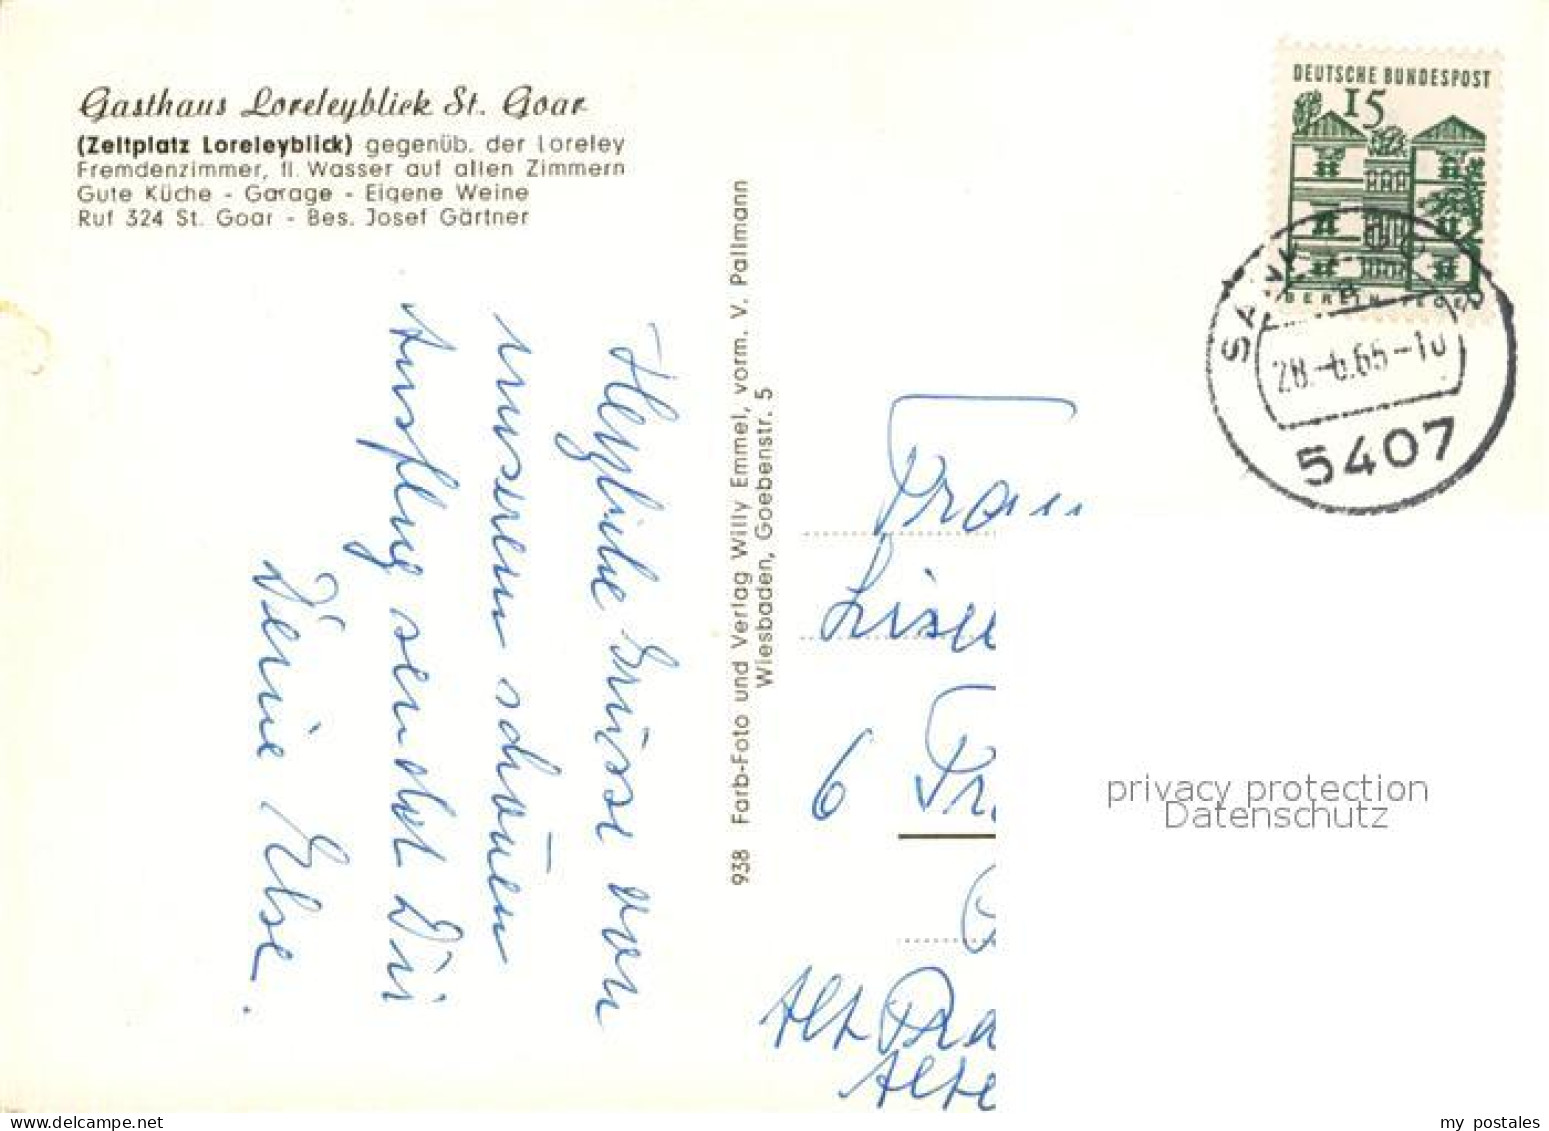 Gasthaus Loreleyblick St. Goar
(Zeltplatz Loreleyblick) gegenüb. der Loreley
Fremdenzimmer, fl. Wasser auf allen Zimmern
Gute Küche - Garage - Eigene Weine
Ruf 324 St. Goar - Bes. Josef Gärtner
Herzliche Grüsse von
unserem schönen
Ausflug sendet Dir
Deine Else.
938 Farb-Foto und Verlag Willy Emmel, vorm. V. Pallmann
Wiesbaden, Goebenstr. 5
DEUTSCHE BUNDESPOST
15
BERLIN TEGEL
28.-6.65-10
5407
Frau
6
Alt
privacy protection
Datenschutz
my postales